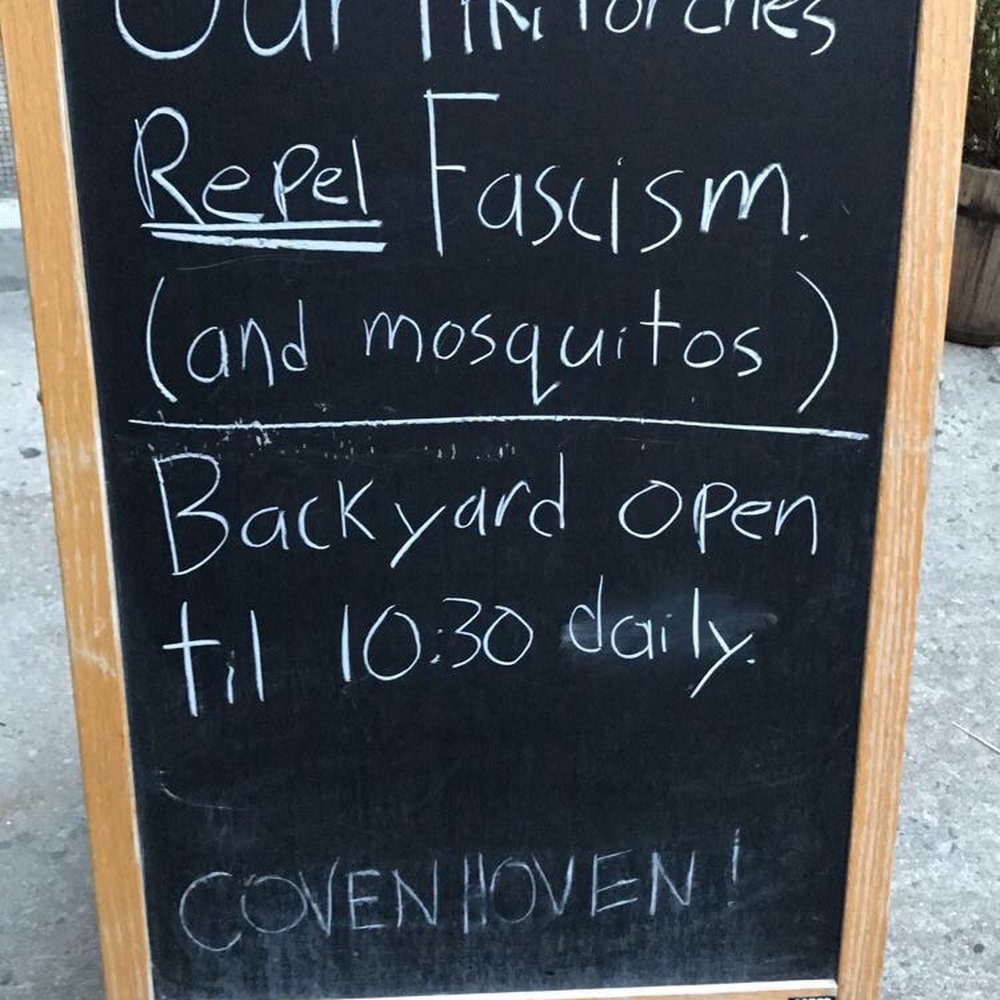 Our Tiki Torches
Repel Fascism.
(and mosquitos)
Backyard open
til 10:30 daily.
COVENHOVEN!